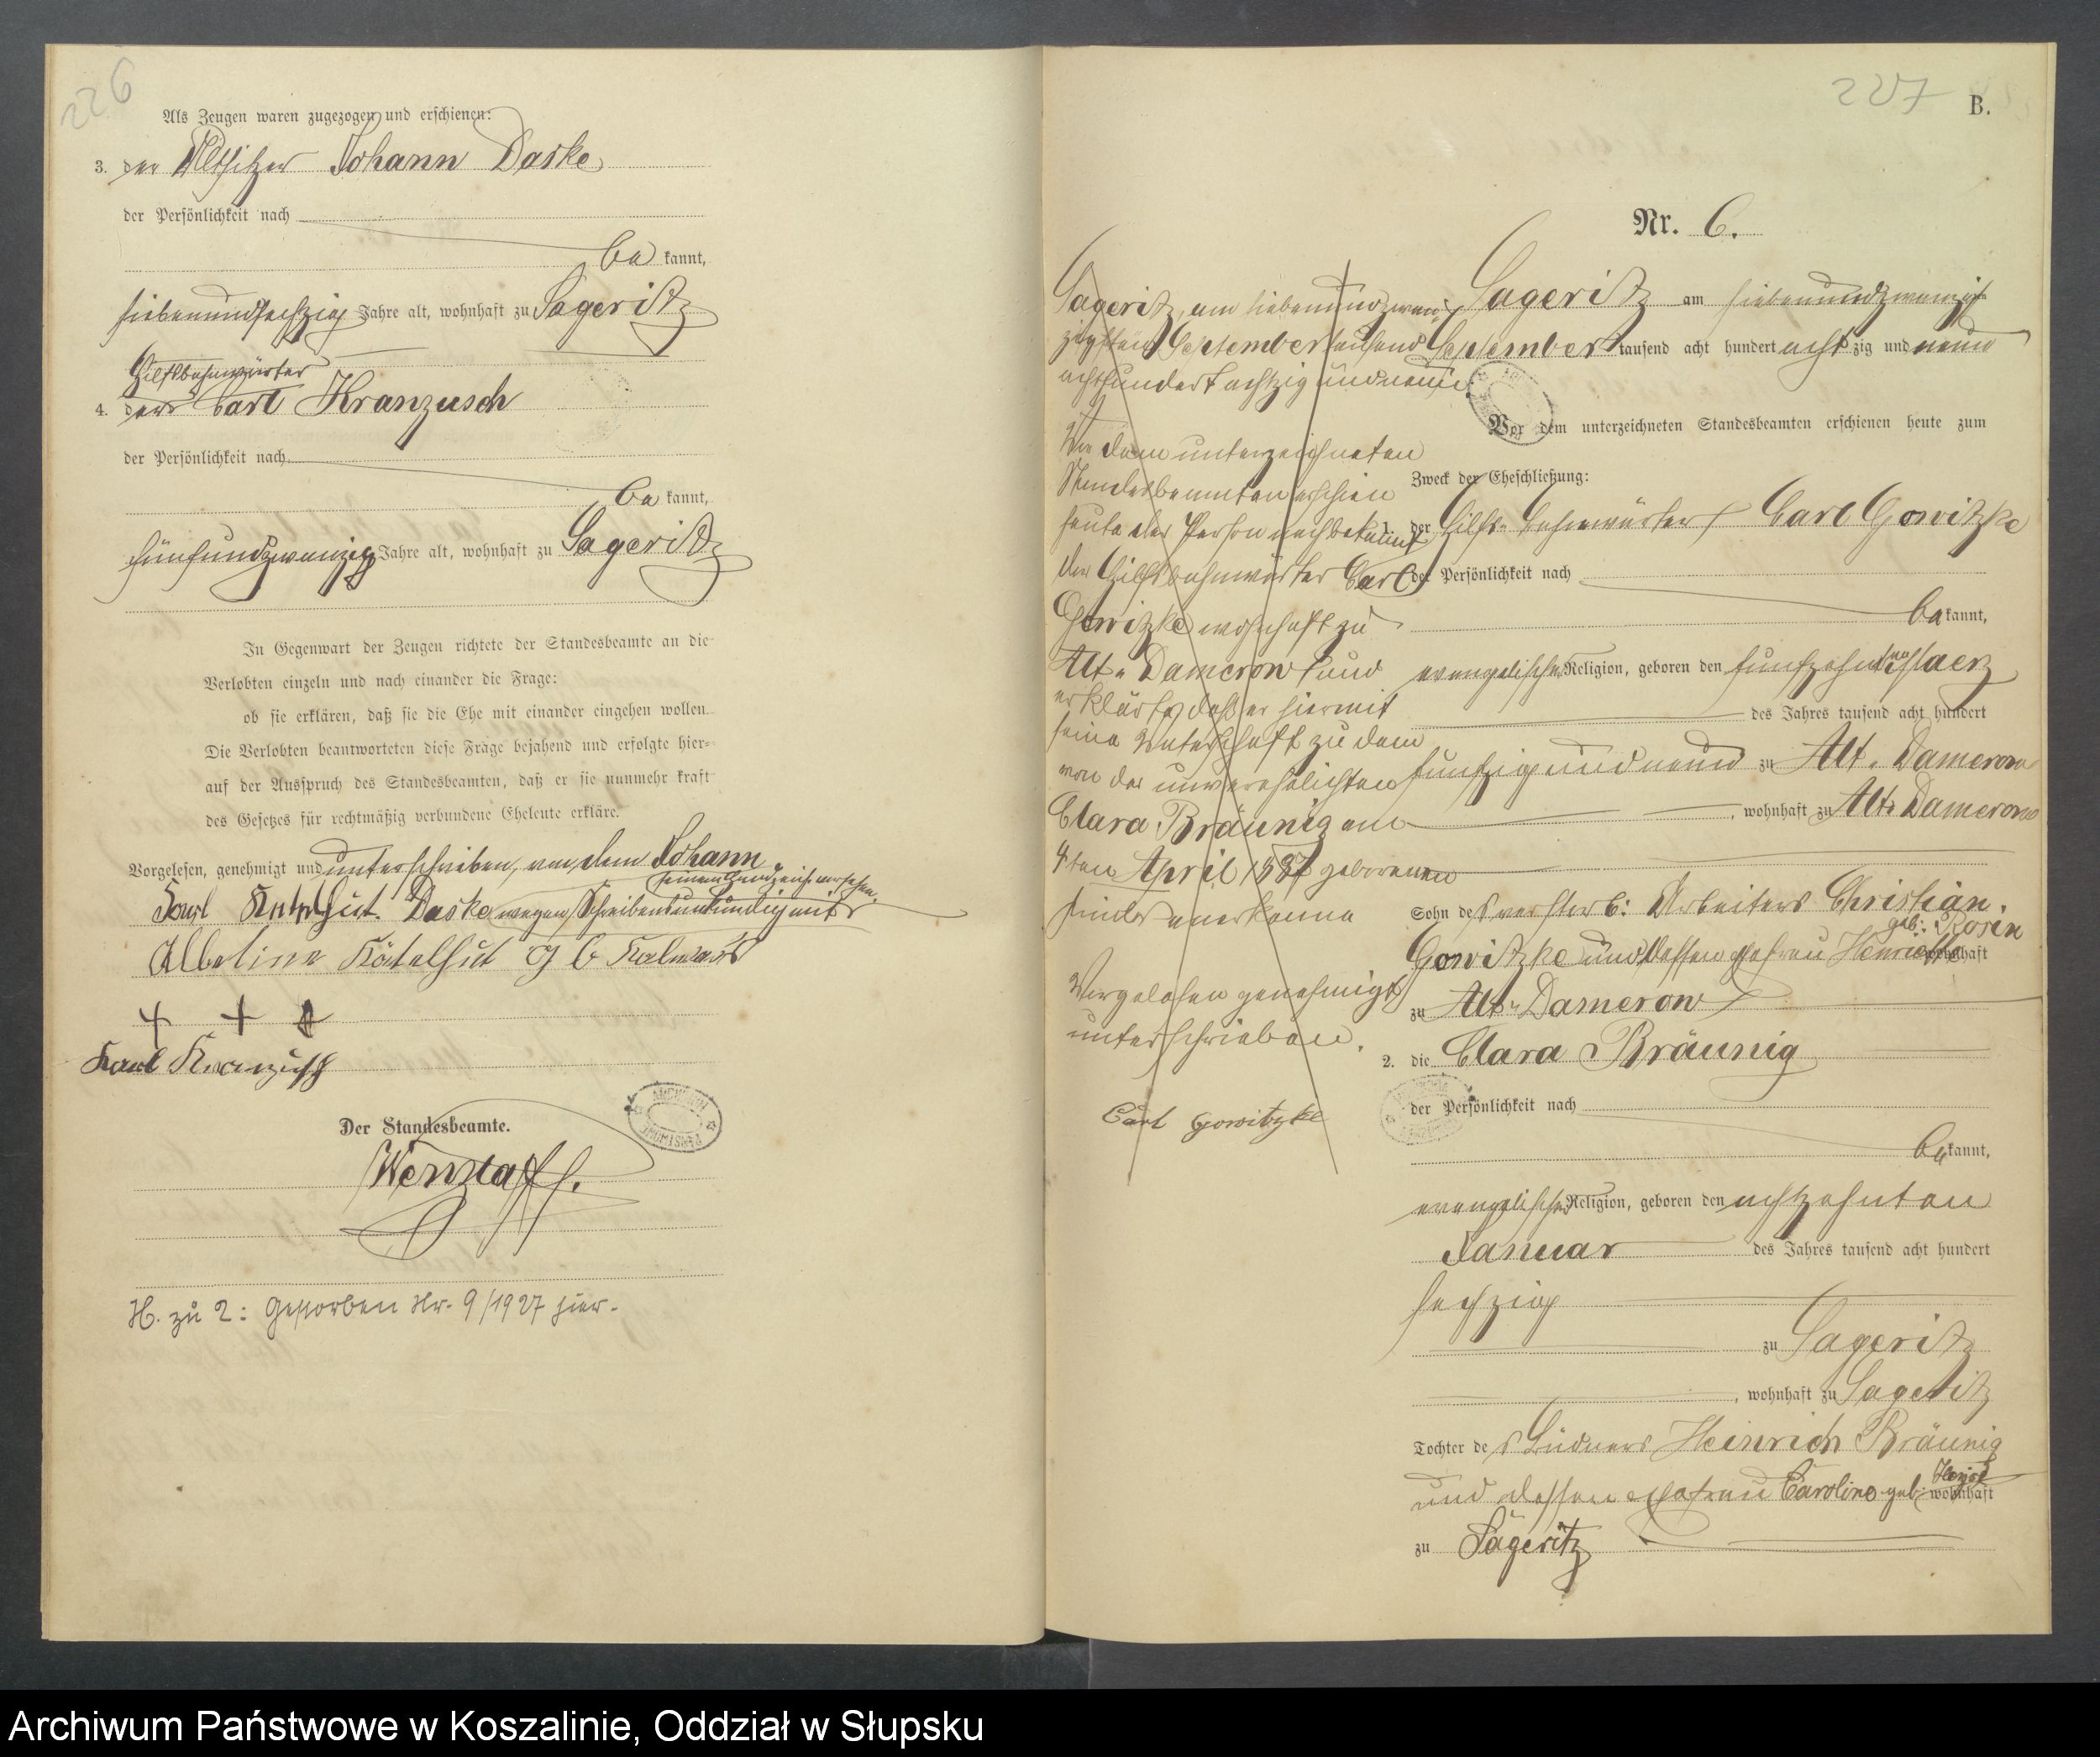 226
Als Zeugen waren zugezogen und erschienen:
3. der Altsitzer Johann Daske
der Persönlichkeit nach
be kannt,
siebenundsechzig Jahre alt, wohnhaft zu Sageritz
Hilfsbahnwärter
4. der Carl Kranzusch
der Persönlichkeit nach
be kannt,
fünfundzwanzig Jahre alt, wohnhaft zu Sageritz
In Gegenwart der Zeugen richtete der Standesbeamte an die
Verlobten einzeln und nach einander die Frage:
ob sie erklären, daß sie die Ehe mit einander eingehen wollen.
Die Verlobten beantworteten diese Frage bejahend und erfolgte hier-
auf der Ausspruch des Standesbeamten, daß er sie nunmehr kraft
des Gesetzes für rechtmäßig verbundene Eheleute erkläre.
Vorgelesen, genehmigt und unterschrieben, von dem Johann
seinem Handzeichen versehen.
Karl Daske wegen Schreibensunkundig mit
Albertine
+ + +
Karl Kranzusch
Der Standesbeamte.
H. zu 2: Gestorben Nr. 9/1927 hier.
227
B.
Nr. 6.
Sageritz am siebenundzwanzigsten
September tausend acht hundert acht zig und neun
Vor dem unterzeichneten Standesbeamten erschienen heute zum
Zweck der Eheschließung:
1. der Hilfs-Bahnwärter Carl Gowitzke
der Persönlichkeit nach
be kannt,
evangelischer Religion, geboren den funfzehnten Maerz
des Jahres tausend acht hundert
funfzig und neun zu Alt-Damerow
, wohnhaft zu Alt-Damerow
Sohn des verstorb: Arbeiters Christian
geb: Rosin
Gowitzke und dessen Ehefrau Henriette wohnhaft
zu Alt-Damerow
2. die Clara Bräunig
der Persönlichkeit nach
be kannt,
evangelischer Religion, geboren den achtzehnten
Januar des Jahres tausend acht hundert
sechzig
zu Sageritz
, wohnhaft zu Sageritz
Tochter des Büdners Heinrich Bräunig
und dessen Ehefrau Caroline geb: wohnhaft
zu Sageritz
Sageritz, am siebenundzwan-
zigsten September tausend
achthundert achtzig und neun.
Vor dem unterzeichneten
Standesbeamten erschien
heute der Person nach bekannt
der Hilfsbahnwärter Carl
Gowitzke wohnhaft zu
Alt-Damerow und
erklärte, daß er hiermit
seine Vaterschaft zu dem
von der unverehelichten
Clara Bräunig am
4ten April 1887 geborenen
Kinde anerkenne
Vorgelesen genehmigt
unterschrieben.
Carl Gowitzke
Archiwum Państwowe w Koszalinie, Oddział w Słupsku